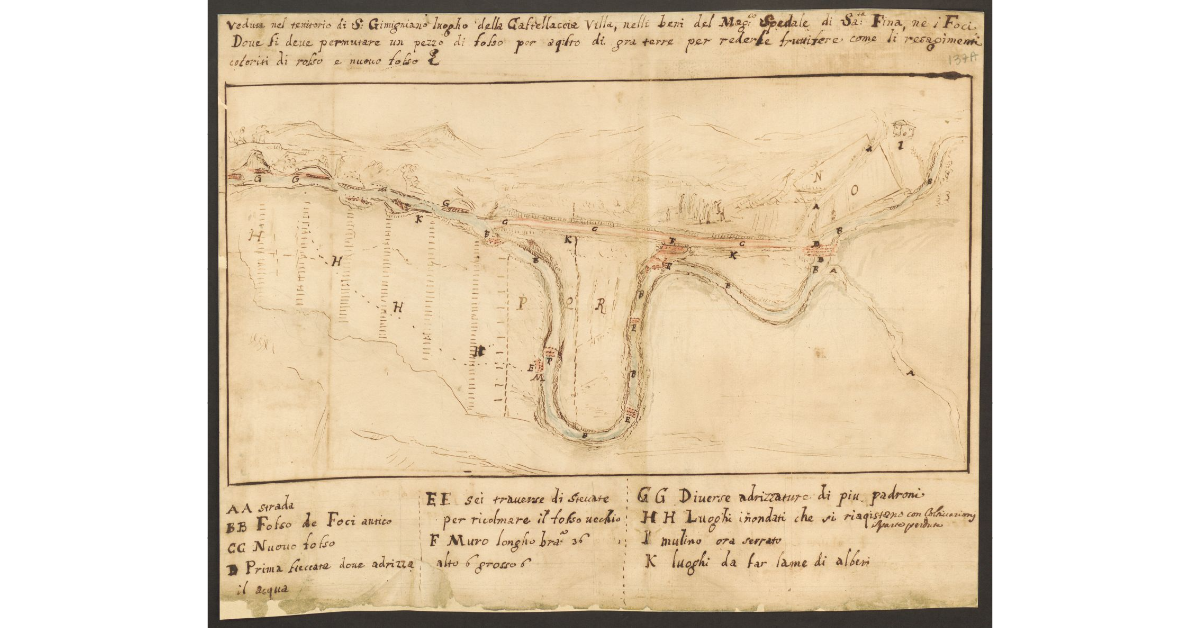 Veduta nel territorio di S. Gimignano luogho della Castellaccia Villa, nelli beni del Mag.co Spedale di Sa.ta Fina, ne i Foci.
Dove si deve permutare un pezzo di fosso por aqisto di gra terre per rederle fruttifere come li
coloriti di rosso e nuovo fosso
137A
G G H H H H K G F B G K G P O R E F K G B E M B N A O I B
AA strada
BB Fosso de Foci antico
CC Nuovo fosso
D Prima steccata dove adrizza
il acqua
EE sei traverse di steccate
per ricolmare il fosso vechio
F Muro longho bra. 36
alto 6 grosso 6
GG Diverse adrizzature di piu padroni
HH Luoghi inondati che si riaqistano con
I mulino ora serrato
K luoghi da far lame di alberi